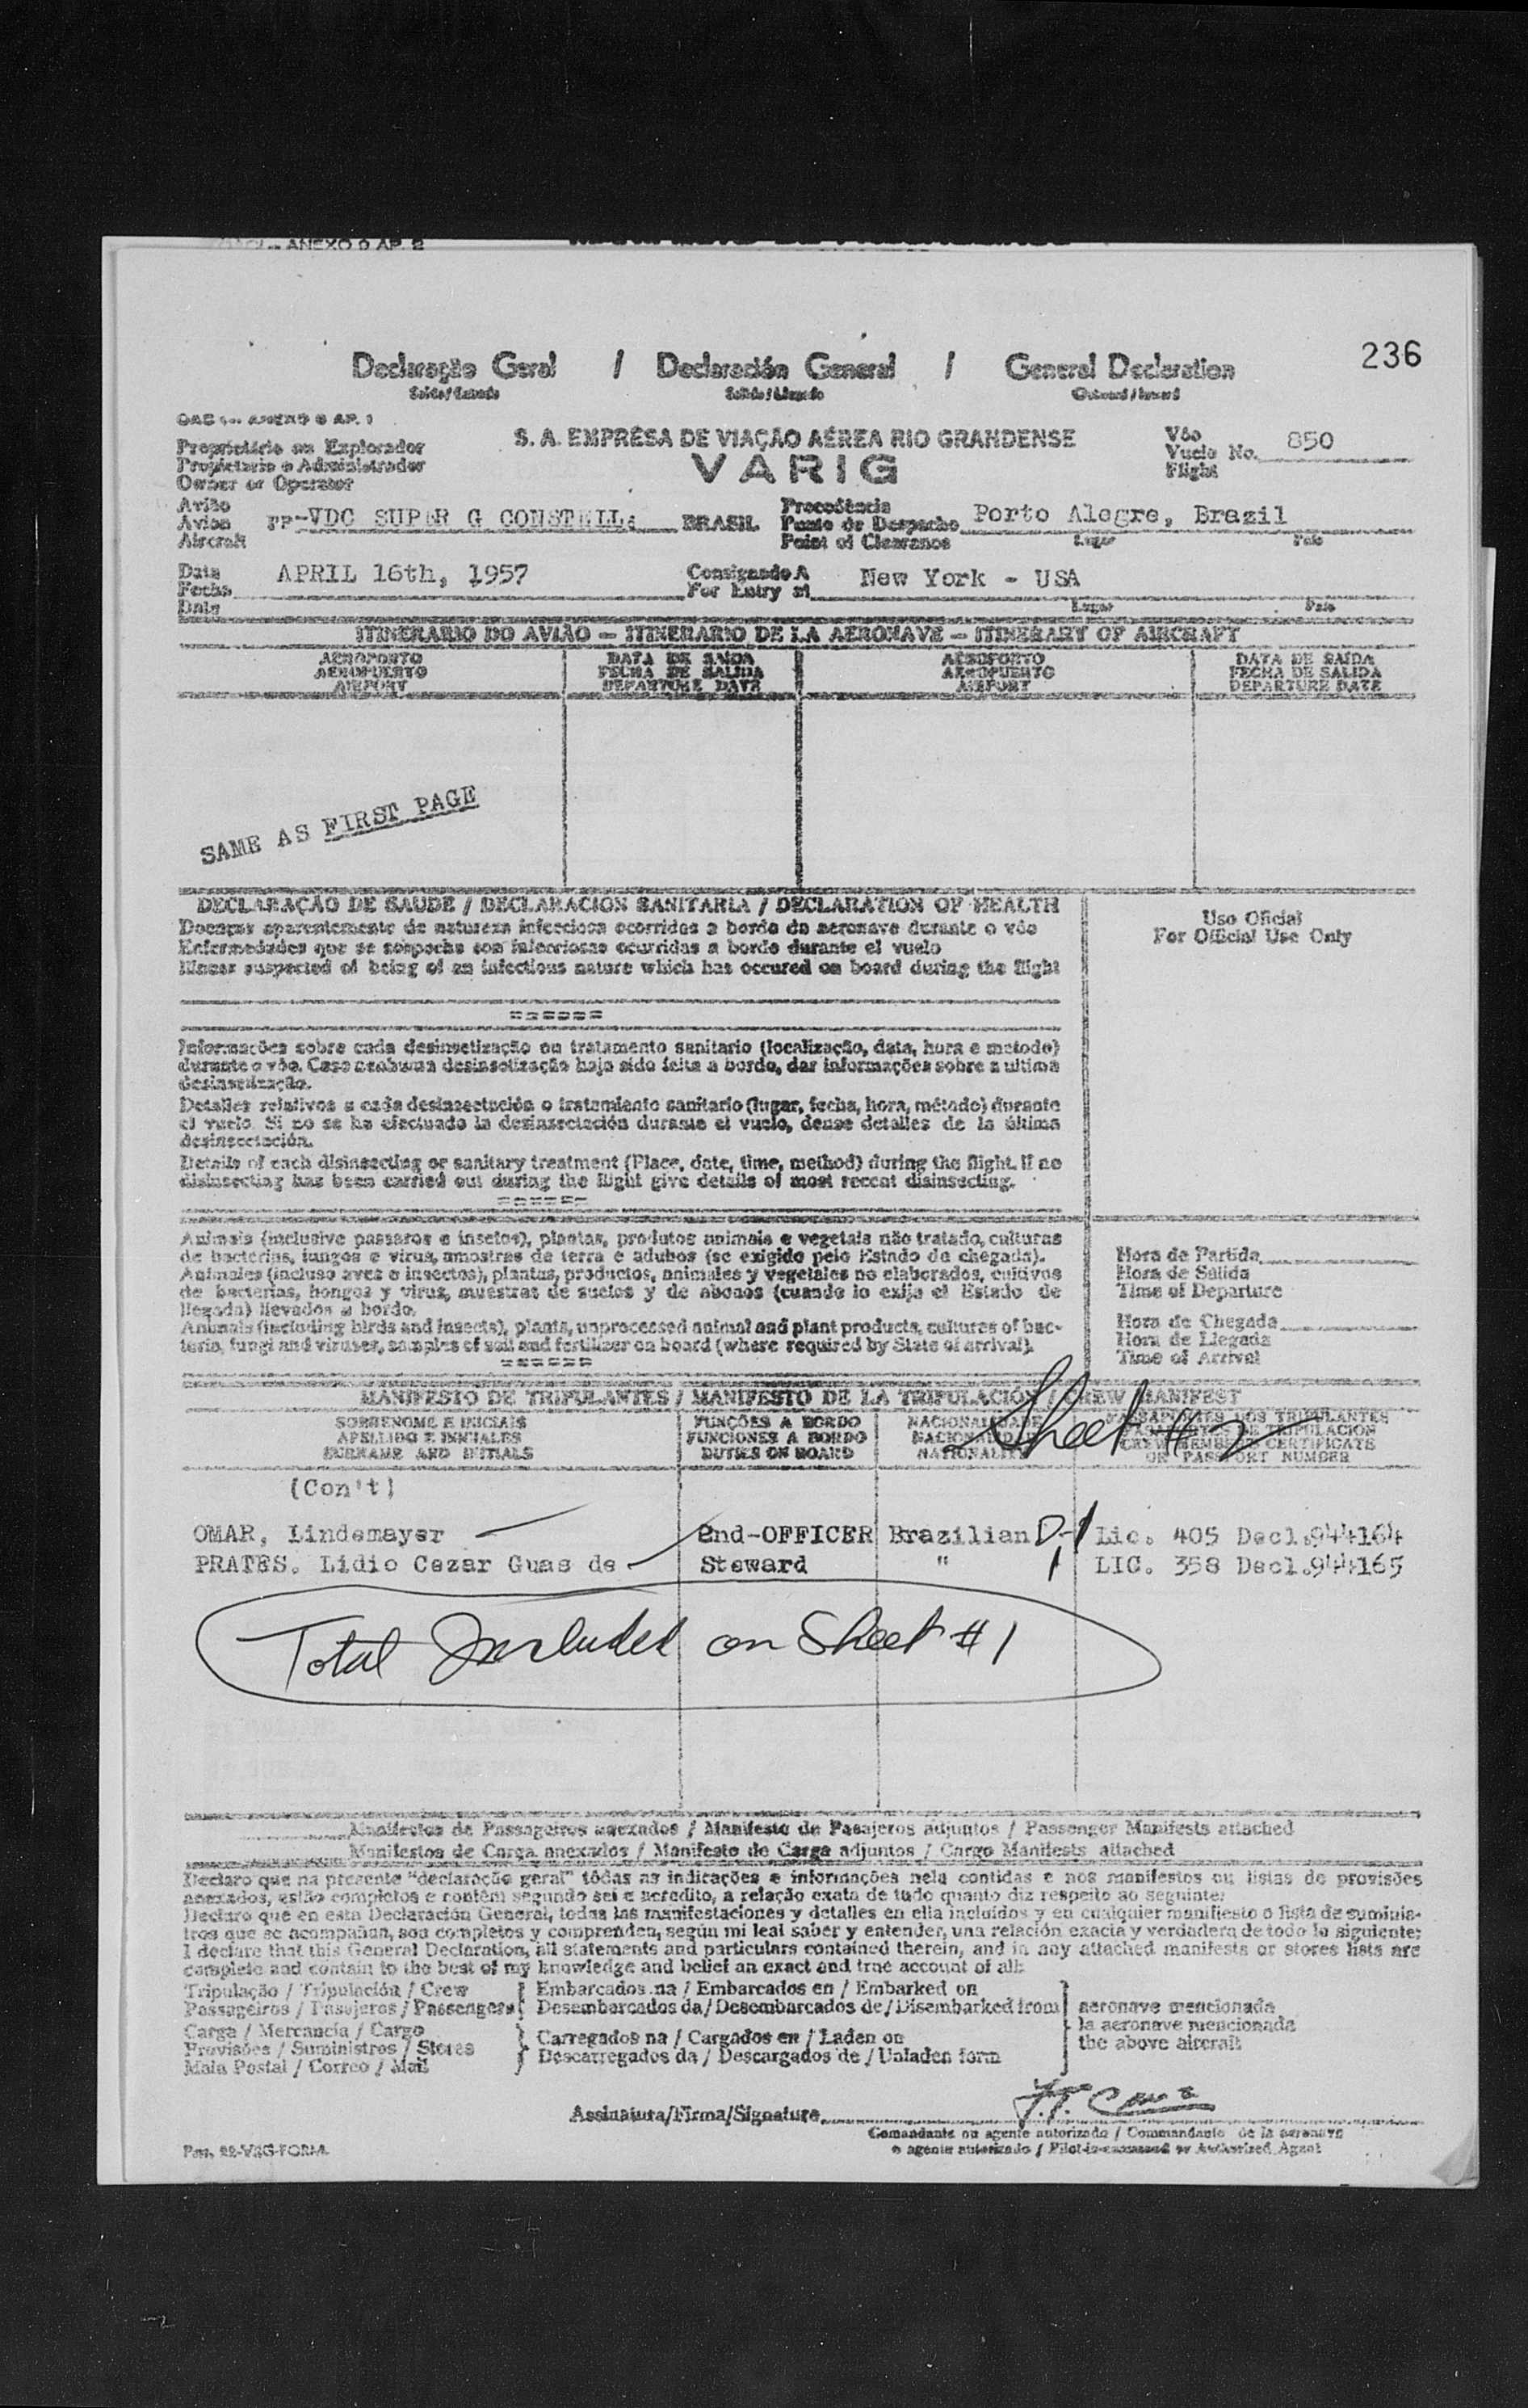 ANEXO 9 AP. 2
236
Declaração Geral / Declaración General / General Declaration
Saída/Entrada Salida/Llegada Outward/Inward
ANEXO 9 AP. 1
Proprietário ou Explorador
Propietario o Administrador
Owner or Operator
S. A. EMPRÊSA DE VIAÇÃO AÉREA RIO GRANDENSE
VARIG
Vôo
Vuelo No. 850
Flight
Avião
Avion PP-VDC SUPER G CONSTELL. BRASIL
Aircraft
Procedência
Punto de Despacho Porto Alegre, Brazil
Point of Clearance Lugar País
Data
Fecha APRIL 16th, 1957
Date
Consignado A
For Entry at New York - USA
Lugar País
ITINERARIO DO AVIÃO — ITINERARIO DE LA AERONAVE — ITINERARY OF AIRCRAFT
AEROPORTO DATA DE SAÍDA AEROPORTO DATA DE SAÍDA
AEROPUERTO FECHA DE SALIDA AEROPUERTO FECHA DE SALIDA
AIRPORT DEPARTURE DATE AIRPORT DEPARTURE DATE
SAME AS FIRST PAGE
DECLARAÇÃO DE SAUDE / DECLARACION SANITARIA / DECLARATION OF HEALTH
Doenças aparentemente de natureza infecciosa ocorridas a bordo da aeronave durante o vôo
Enfermedades que se sospecha son infecciosas ocurridas a bordo durante el vuelo
Illness suspected of being of an infectious nature which has occured on board during the flight
======
Uso Oficial
For Official Use Only
Informações sobre cada desinsetização ou tratamento sanitario (localização, data, hora e metodo)
durante o vôo. Caso nenhuma desinsetização haja sido feita a bordo, dar informações sobre a ultima
desinsetização.
Detalles relativos a cada desinsectación o tratamiento sanitario (lugar, fecha, hora, método) durante
el vuelo. Si no se ha efectuado la desinsectación durante el vuelo, dense detalles de la última
desinsectación.
Details of each disinsecting or sanitary treatment (Place, date, time, method) during the flight. If no
disinsecting has been carried out during the flight give details of most recent disinsecting.
======
Animais (inclusive passaros e insetos), plantas, produtos animais e vegetais não tratado, culturas
de bacterias, fungos e virus, amostras de terra e adubos (se exigido pelo Estado de chegada).
Animales (incluso aves e insectos), plantas, productos, animales y vegetales no elaborados, cultivos
de bacterias, hongos y virus, muestras de suelos y de abonos (cuando lo exija el Estado de
llegada) llevados a bordo.
Animals (including birds and insects), plants, unprocessed animal and plant products, cultures of bac-
teria, fungi and viruses, samples of soil and fertilizer on board (where required by State of arrival).
======
Hora de Partida
Hora de Salida
Time of Departure
Hora de Chegada
Hora de Llegada
Time of Arrival
MANIFESTO DE TRIPULANTES / MANIFESTO DE LA TRIPULACIÓN / CREW MANIFEST
Sheet #2
SOBRENOME E INICIAIS FUNÇÕES A BORDO NACIONALIDADE PASSAPORTES DOS TRIPULANTES
APELLIDO E INICIALES FUNCIONES A BORDO NACIONALIDAD PASAPORTES DE TRIPULACION
SURNAME AND INITIALS DUTIES ON BOARD NATIONALITY CREW MEMBERS CERTIFICATE
OR PASSPORT NUMBER
(Con't)
OMAR, Lindemayer 2nd-OFFICER Brazilian D-1 Lic. 405 Decl.944164
PRATES. Lidio Cezar Guas de Steward " LIC. 358 Decl.944165
Total Included on Sheet #1
Manifestos de Passageiros anexados / Manifesto de Pasajeros adjuntos / Passenger Manifests attached
Manifestos de Carga anexados / Manifesto de Carga adjuntos / Cargo Manifests attached
Declaro que na presente "declaração geral" tôdas as indicações e informações nela contidas e nos manifestos ou listas de provisões
anexados, estão completos e contêm segundo sei e acredito, a relação exata de tudo quanto diz respeito ao seguinte:
Declaro que en esta Declaración General, todas las manifestaciones y detalles en ella incluidos y en cualquier manifiesto o lista de suminis-
tros que se acompañan, son completos y comprenden, según mi leal saber y entender, una relación exacta y verdadera de todo lo siguiente:
I declare that this General Declaration, all statements and particulars contained therein, and in any attached manifests or stores lists are
complete and contain to the best of my knowledge and belief an exact and true account of all:
Tripulação / Tripulación / Crew Embarcados na / Embarcados en / Embarked on
Passageiros / Pasajeros / Passengers Desembarcados da / Desembarcados de / Disembarked from aeronave mencionada
Carga / Mercancía / Cargo la aeronave mencionada
Provisões / Suministros / Stores Carregados na / Cargados en / Laden on the above aircraft
Mala Postal / Correo / Mail Descarregados da / Descargados de / Unladen form
Assinatura/Firma/Signature
Comandante ou agente autorizado / Commandante de la aeronave
o agente autorizado / Pilot-in-command or Authorized Agent